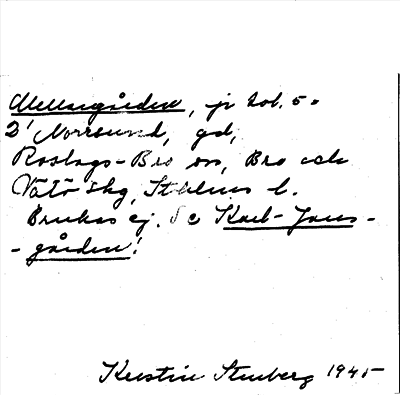 Mellangården, jr tab. 5.
2' Norrsund, gd,
Roslags-Bro sn, Bro och
Vätö skg, Sthlms l.
Brukas ej. Se Karl-Jans-
-gården!
Kerstin Stenberg 1945